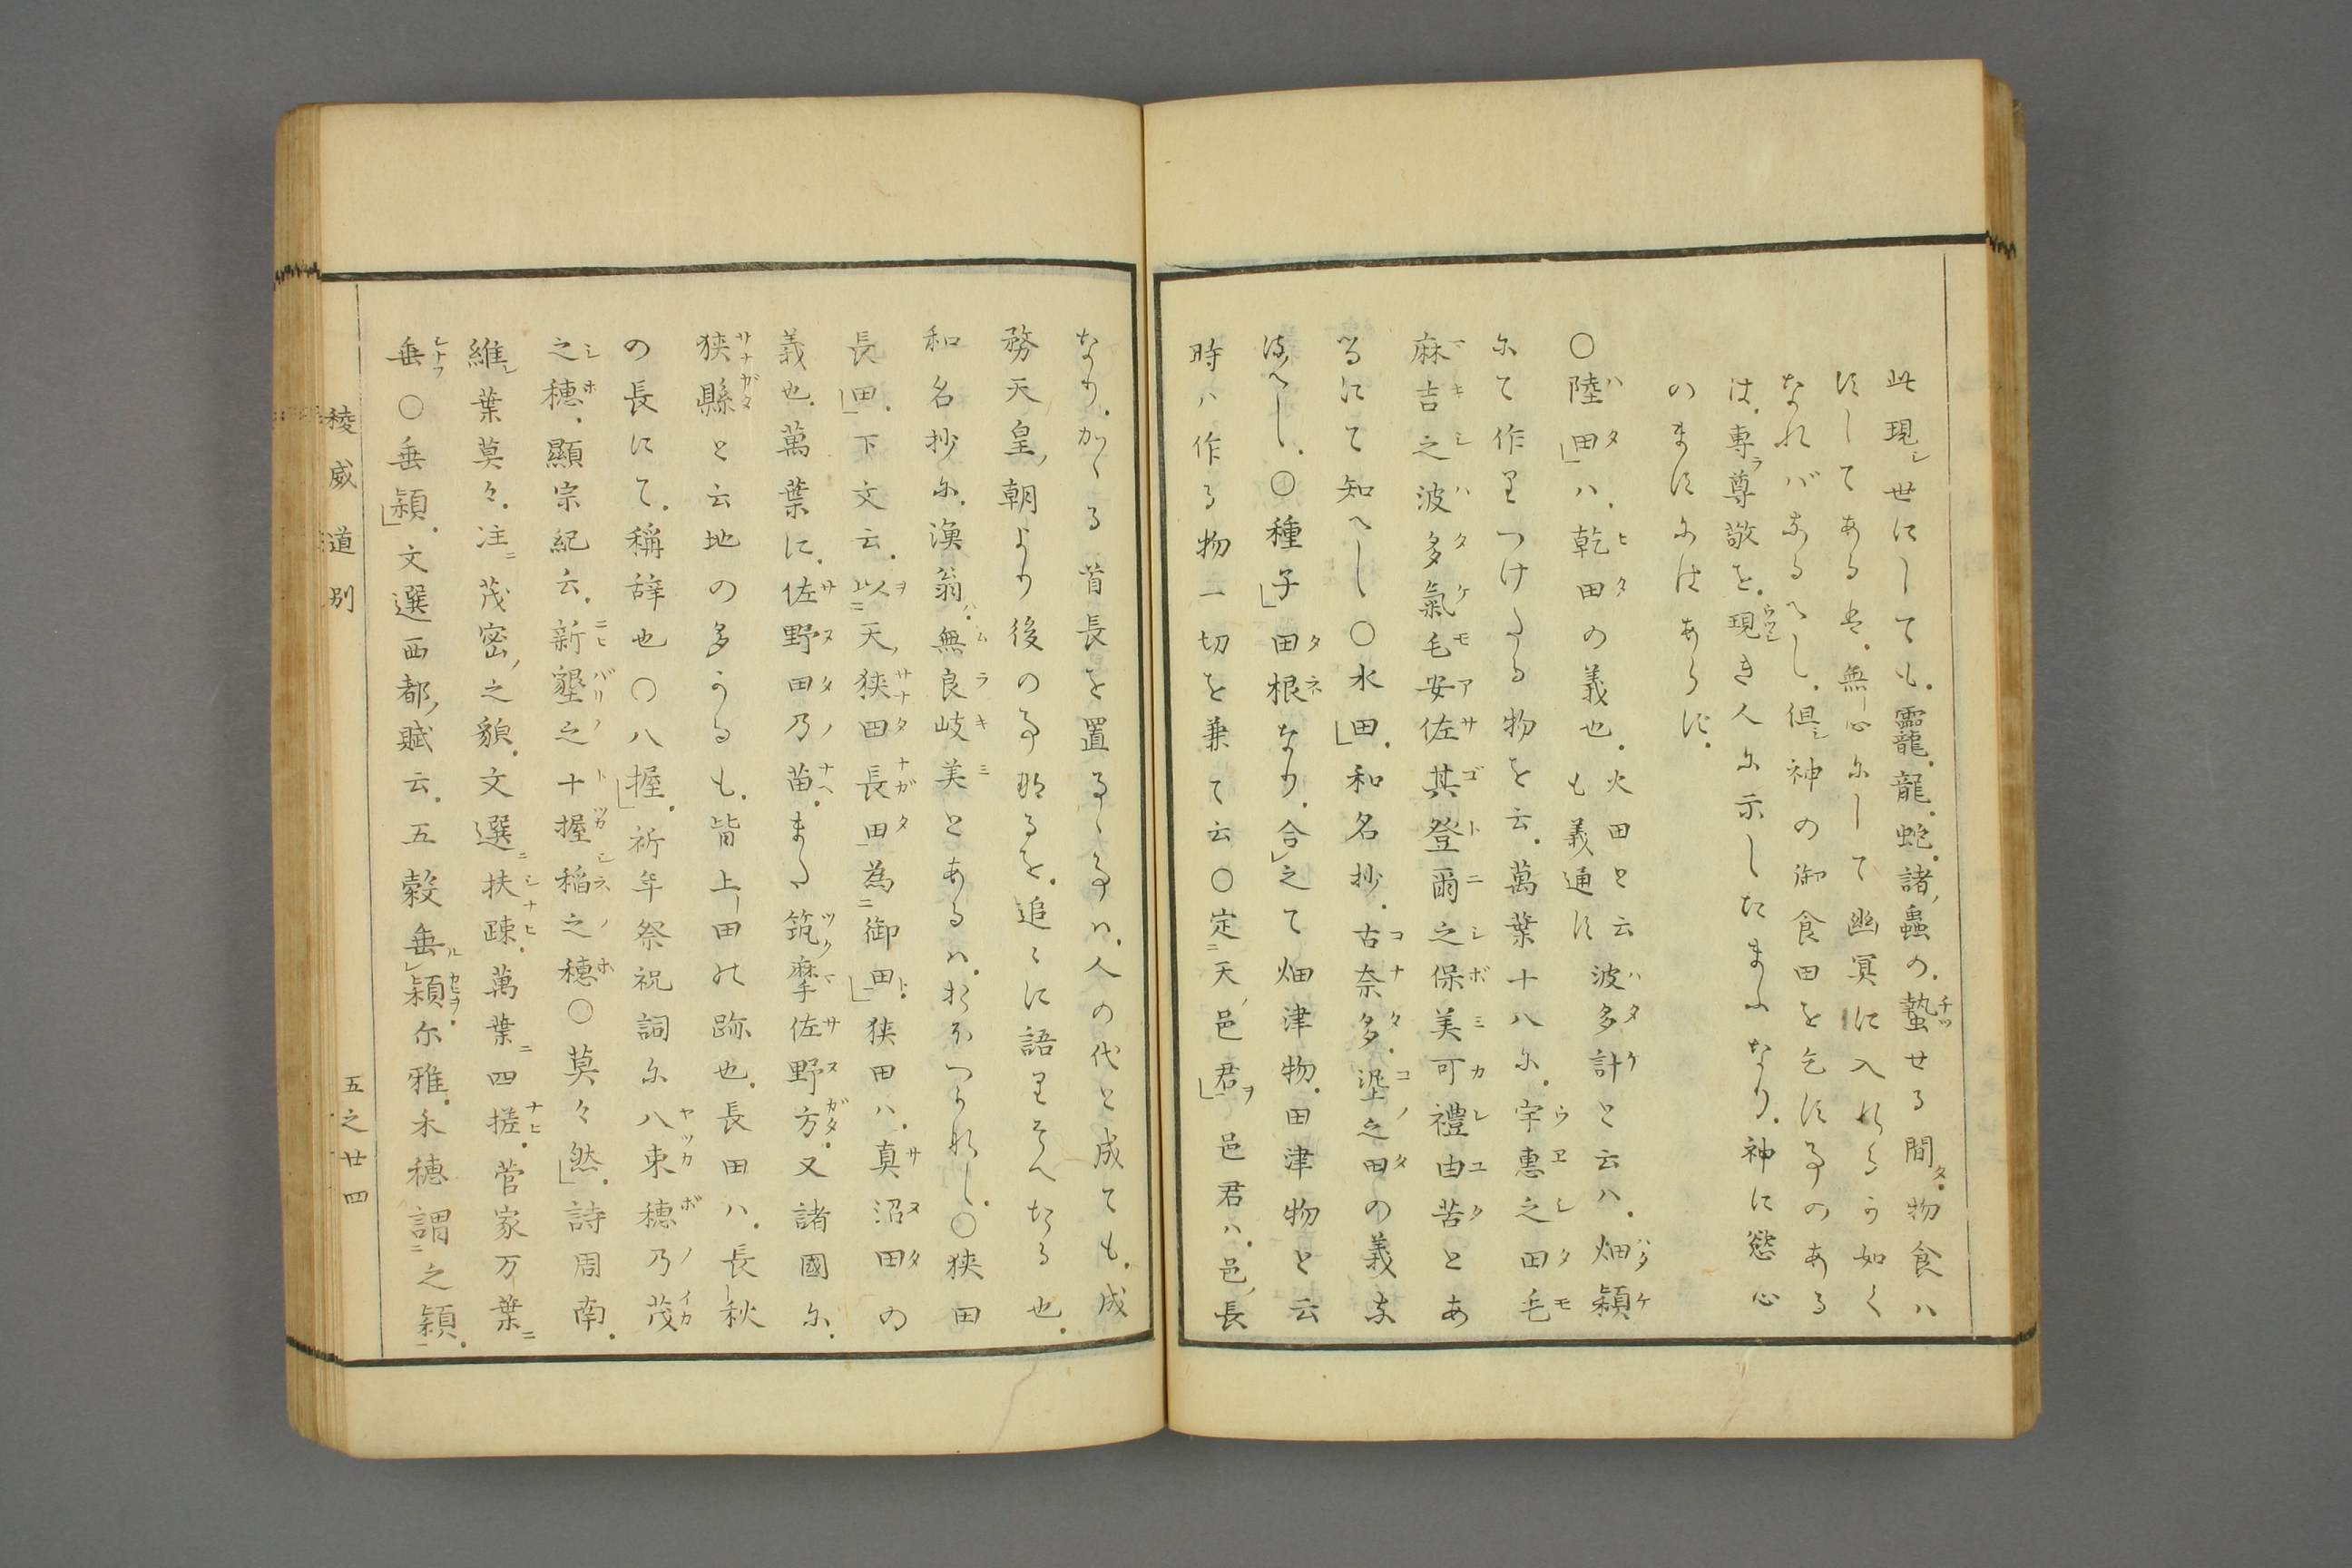 此現世にしても。靈龍。龍。蛇。諸蟲の。蟄せる間。物食ハ
ずしてあるは。無心にして幽冥に入れらう如く
なれバなるへし。但神の御食田を乞ず事のある
は。專尊敬を。現き人に示したまふなり。神に慾心
のまずにはあらず。
〇陸田」ハ。乾田の義也。火田と云も義通ず 波多計と云ハ。畑穎
にて作りつけたる物を云。萬葉十八に。宇惠之田毛
麻吉之波多氣毛安佐其登爾之保美可禮由苦とあ
るにて知へし〇水田」。和名抄。古奈多。墾之田の義な
るへし。〇種子」田根なり。合之て畑津物。田津物と云
時ハ作る物一切を兼て云〇定天邑君」邑君ハ。邑長
なり。かゝる首長を置るゝ事ハ。人の代と成ても。成
務天皇朝より後の事なるを。追々に語りそへたる也。
和名抄に。漁翁無良岐美とあるハ。おのつかれし。〇狹田
長田」。下文云。以天狹田長田為御田」。狹田ハ。真沼田の
義也。萬葉に。佐野田乃苗。また筑摩佐野方。又諸國に。
狹縣と云地の多かるも。皆上田の跡也。長田ハ。長秋
の長にて。稱辭也〇八握」。祈年祭祝詞に八束穗乃茂
之穗。顯宗紀云。新墾之十握稲之穗〇莫々然」。詩周南。
維葉莫々。注茂密之貌。文選扶疎。萬葉四搓。菅家万葉
垂〇垂穎」。文選西都賦云。五穀垂穎。尓雅。禾穗謂之穎。
稜威道別
五之廿四